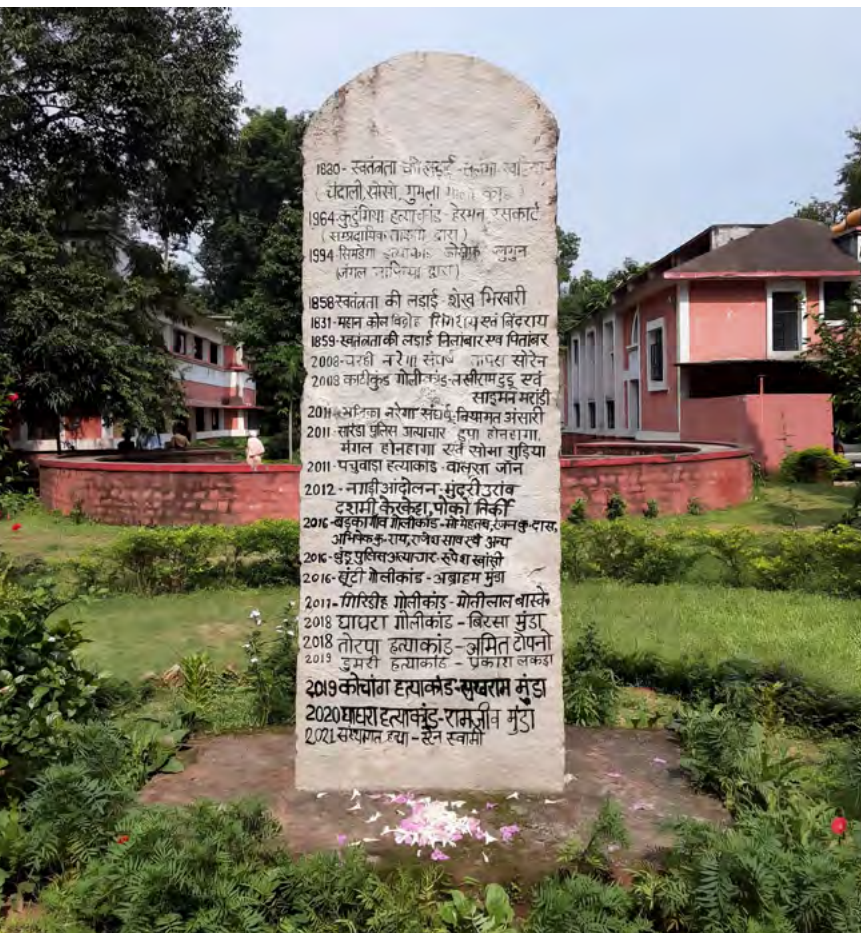 1880- स्वतंत्रता की लड़ाई -तेलंगा खड़िया
(चंदाली,सोसो, गुमला गोली कांड)
1964-कुटुंगिया हत्याकांड- हेरमन रसकार्ट
(सम्प्रदायिक ताकतों द्वारा)
1994-सिमडेगा हत्याकांड लुगुन
(जंगल माफिया द्वारा)
1858स्वतंत्रता की लडाई- शेख भिखारी
1831-महान कोल विद्रोह सिंगराय एवं बिंदराय
1859-स्वतंत्रता की लडाई निलांबर एवं पितांबर
2008- नरेगा संघर्ष तापस सोरेन
2009 काटीकुंड गोलीकांड-लसीराम टुडू एवं
साइमन मरांडी
2011- नरेगा संघर्ष-नियामत अंसारी
2011-सारंडा पुलिस अत्याचार दुपा होनहागा,
मंगल होनहागा एवं सोमा गुड़िया
2011-पचुवाड़ा हत्याकांड-वालसा जॉन
2012- नगड़ी आंदोलन-मुंदरी उरांव
दशमी केरकेट्टा,पोको तिर्की
2016-बड़कागांव गोलीकांड-मो मेहताब,रंजन कु-दास,
अभिषेक कु-राय,राजेश साव एवं अन्य
2016-बुंडू पुलिस अत्याचार-रुपेश स्वांसी
2016-खूंटी गोलीकांड-अब्राहम मुंडा
2017-गिरिडीह गोलीकांड-मोतीलाल बास्के
2018 घाघरा गोलीकांड-बिरसा मुंडा
2018 तोरपा हत्याकांड-अमित टोपनो
2019 डुमरी हत्याकांड - प्रकाश लकड़ा
2019कोचांग हत्याकांड-सुखराम मुंडा
2020घाघरा हत्याकांड-रामजीव मुंडा
2021संस्थागत हत्या-स्टेन स्वामी